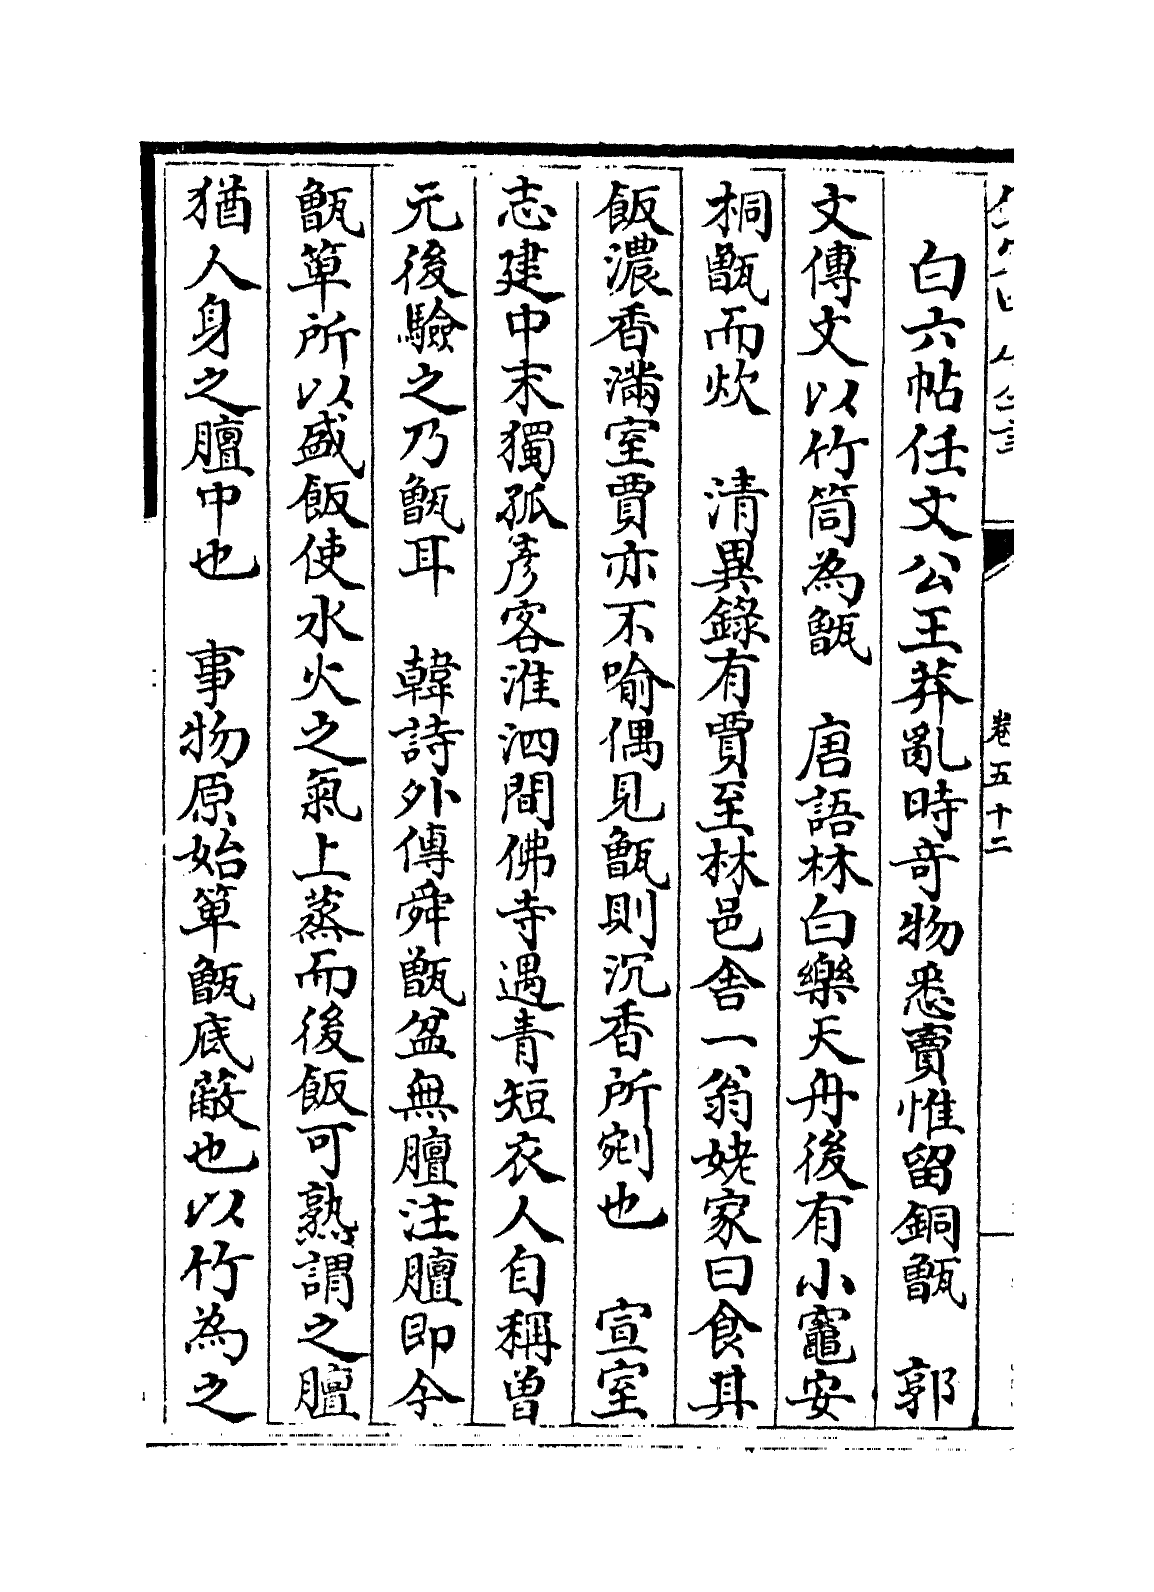 白六帖任文公王莽亂時奇物悉賣惟留銅甑　郭
文傳文以竹筒為甑　唐語林白樂天舟後有小竈安
桐甑而炊　清異錄有賈至林邑舍一翁姥家曰食其
飯濃香滿室賈亦不喻偶見甑則沉香所剜也　宣室
志建中末獨孤彥客淮泗間佛寺遇青短衣人自稱曾
元後驗之乃甑耳　韓詩外傳舜甑盆無膻注膻即今
甑箄所以盛飯使水火之氣上蒸而後飯可熟謂之膻
猶人身之膻中也　事物原始箄甑底蔽也以竹為之
卷五十二